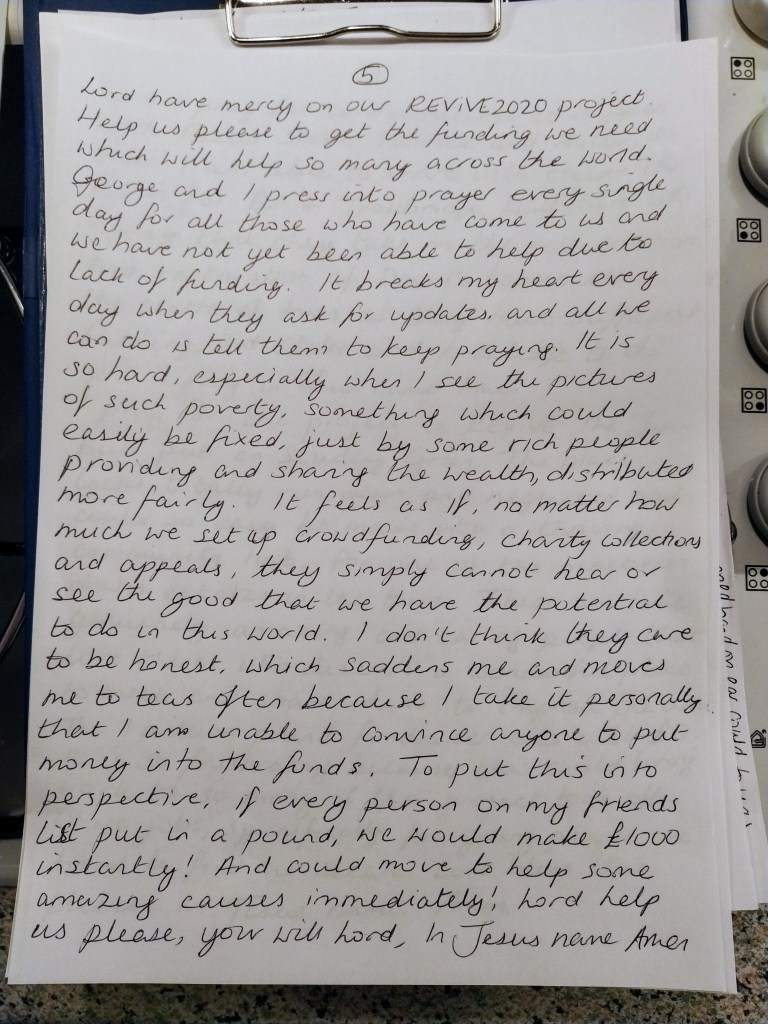 5
Lord have mercy on our REViVE2020 project.
Help us please to get the funding we need
which will help so many across the world.
George and I press into prayer every single
day for all those who have come to us and
we have not yet been able to help due to
lack of funding. It breaks my heart every
day when they ask for updates, and all we
can do is tell them to keep praying. It is
so hard, especially when I see the pictures
of such poverty, something which could
easily be fixed, just by some rich people
providing and sharing the wealth, distributed
more fairly. It feels as if, no matter how
much we set up crowdfunding, charity collections
and appeals, they simply cannot hear or
see the good that we have the potential
to do in this world. I don't think they care
to be honest, which saddens me and moves
me to tears often because I take it personally
that I am unable to convince anyone to put
money into the funds. To put this into
perspective, if every person on my friends
list put in a pound, we would make £1000
instantly! And could move to help some
amazing causes immediately! Lord help
us please, your will Lord, In Jesus name Amen